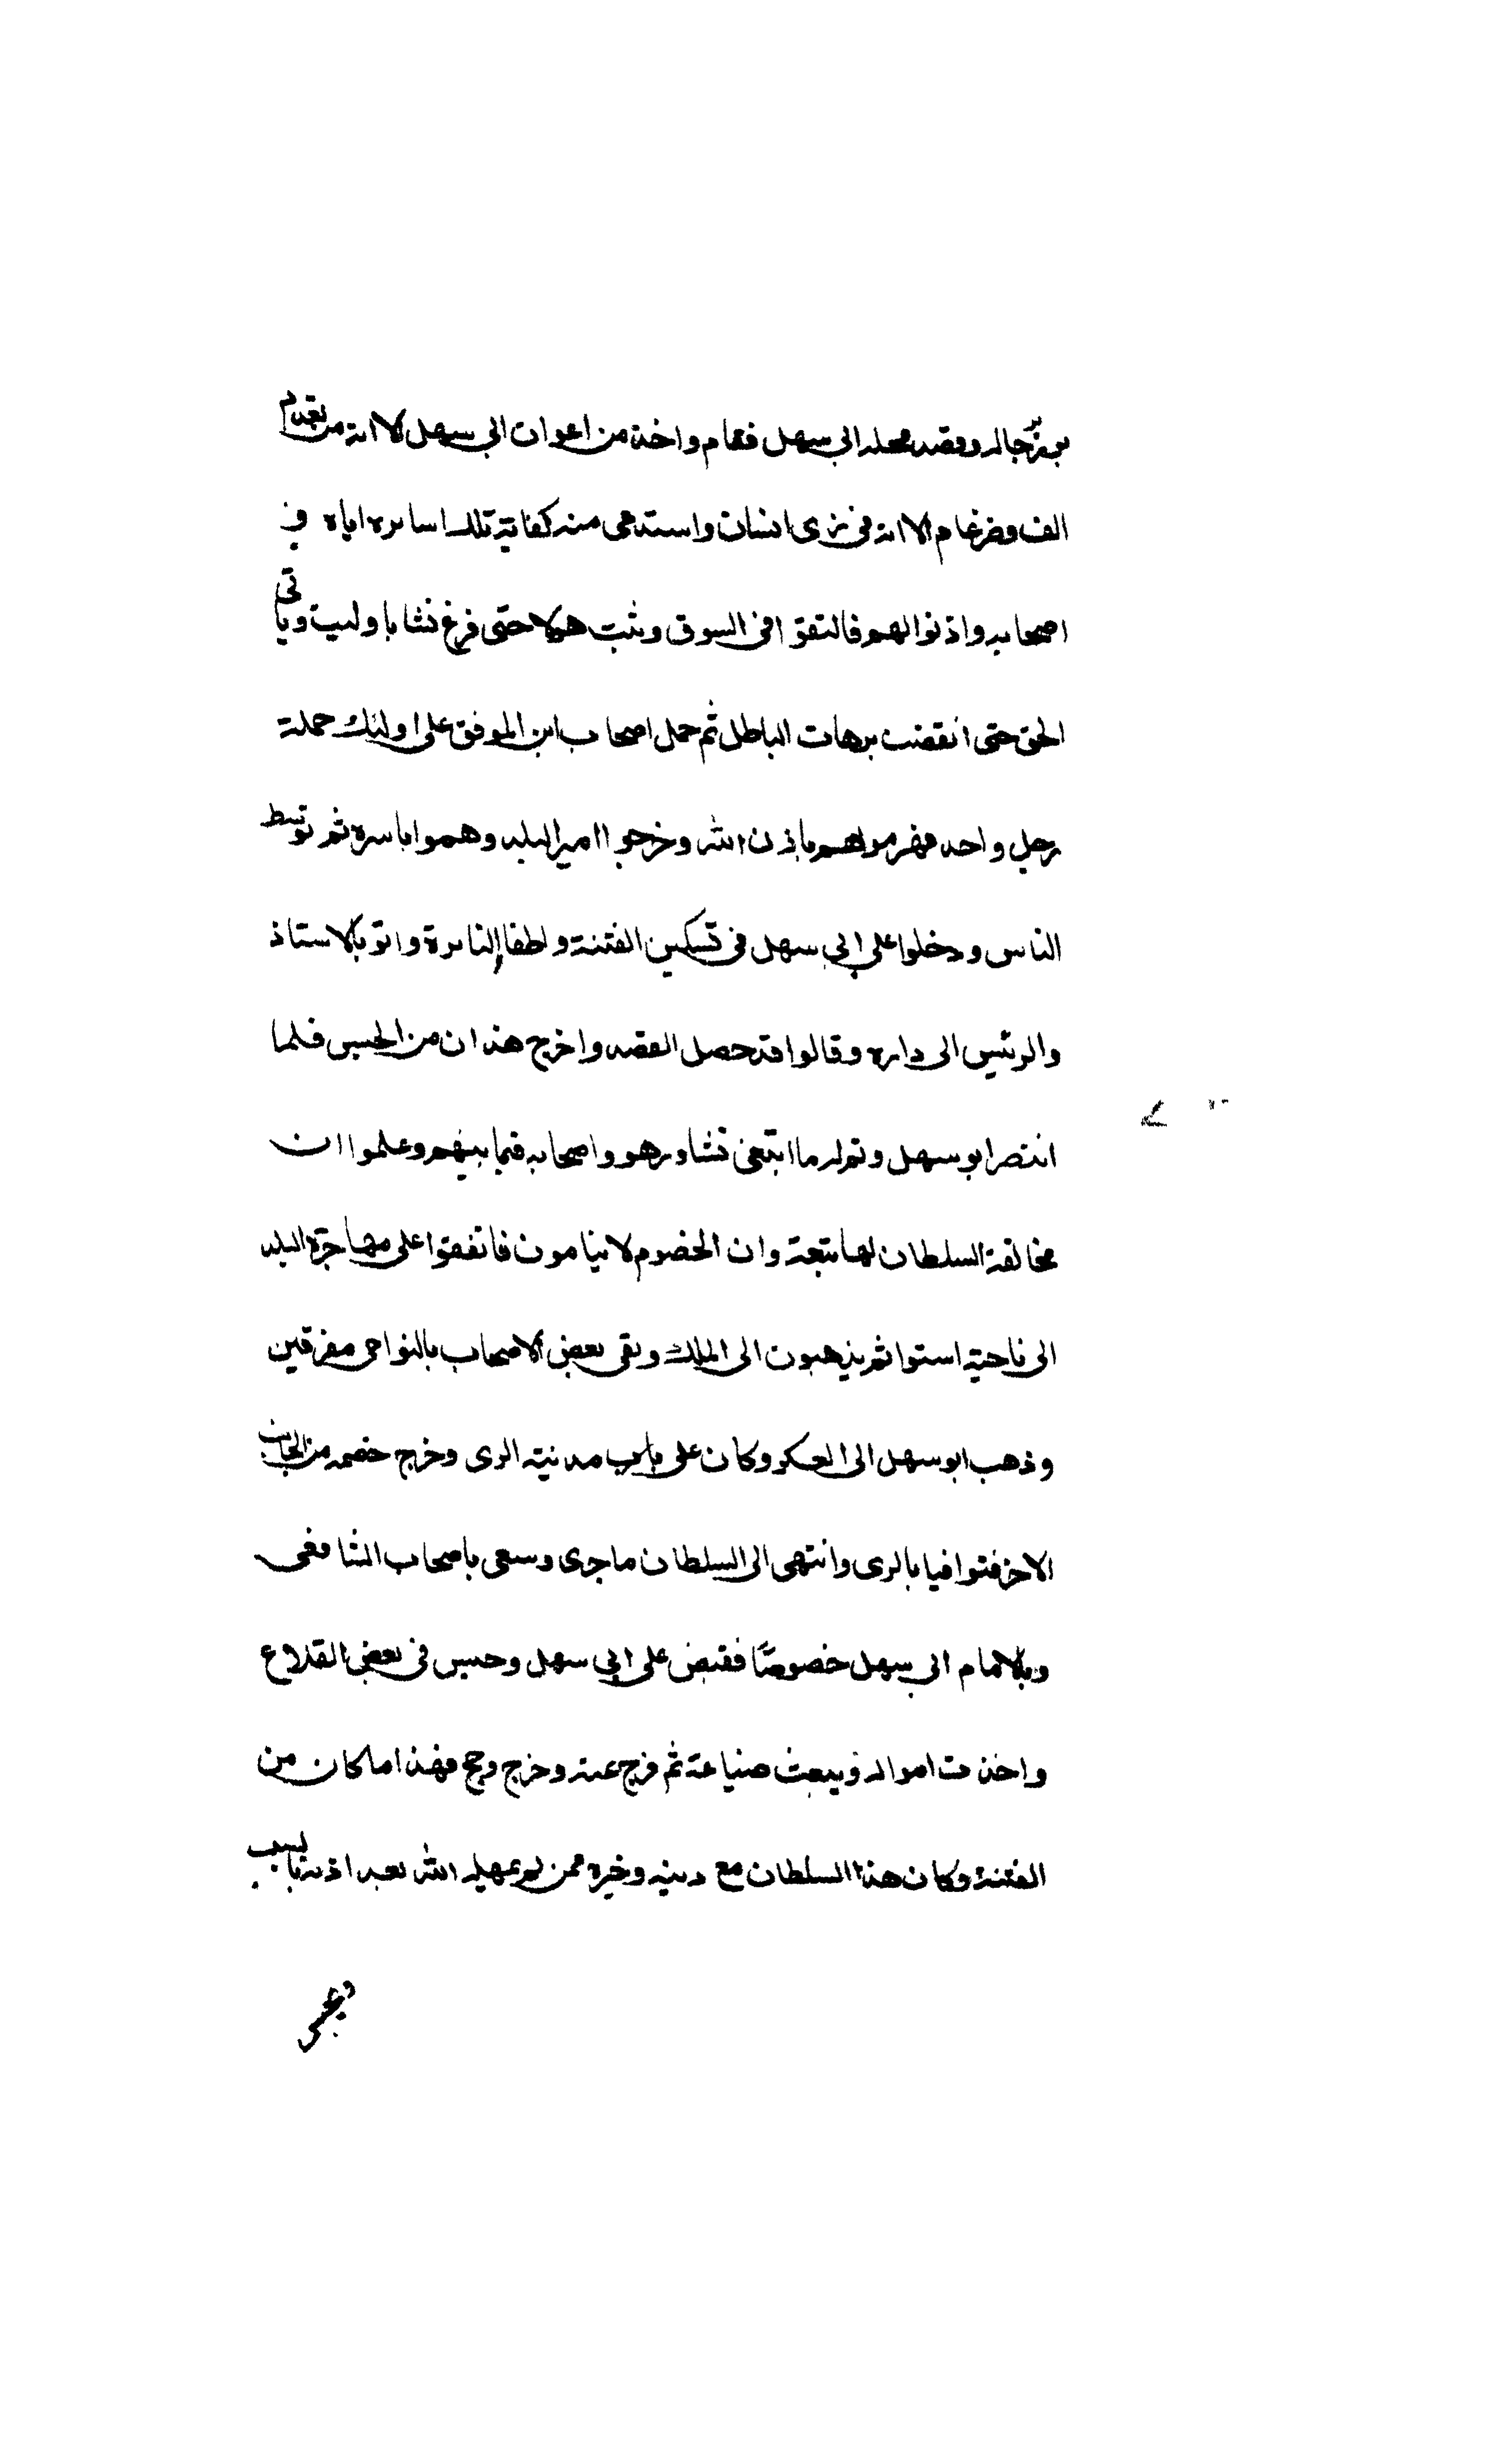 بعز رجاله وقصد محله ابي سهل فقام واخذ من اعوان ابي سهل الا انه من تقدم
الف وضرغام الا انه في زي انسان واستدعى منه كفاية تلك اسايره اياه في
اصحابه واذنوا لهم فالتقوا في السوق وثبت هولا حتى فرغ نشابا وليت وياتى
الحق حتى انقضت برهات الباطل ثم حمل اصحاب ابن الموفق على اولئك حملة
رجل واحد فهزموهم باذن الله وخرجوا امير البلد وهموا باسره ثم توسط
الناس ودخلوا على ابي سهل في تسكين الفتنة واطفا النايرة واتو بالاستاذ
والرئيس الى داره وقالوا قد حصل القصد واخرج هذان من الحبس فلما
انتصر ابو سهل وتم له ما ابتغى تشاور هو واصحابه فيما بينهم وعلموا ان
مخالفة السلطان لها تبعة وان الخصوم لا ينامون فاتفقوا على مهاجرة البلد
الى ناحية استوا ثم يذهبون الى الملك وبقى بعض الاصحاب بالنواحى مفرقين
وذهب ابو سهل الى العسكر وكان على باب مدينة الرى وخرج خصمه من الجانب
الاخر فتوافيا بالرى وانتهى الى السلطان ما جرى وسعى باصحاب الشافعى
وبالامام ابى سهل خصوصًا فقبض على ابي سهل وحبس في بعض القلاع
واخذت امواله وبيعت ضياعة ثم فرج عنه وخرج وحج فهذا ما كان من
الفتنة وكان هذا السلطان مع دينه وخيره ممن لم يمهله الله بعد اذيته بالسب